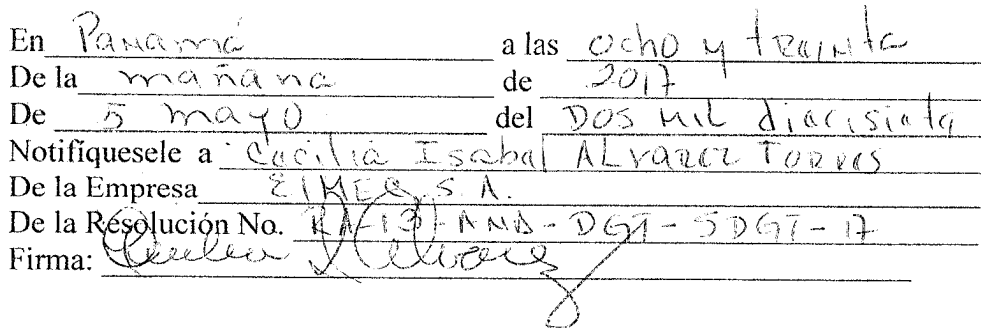 En Panamá a las ocho y treinta
De la mañana de 2017
De 5 mayo del Dos mil diecisiete
Notifíquesele a Cecilia Isabel ALvarez Torres
De la Empresa EIMEC, S.A.
De la Resolución No. RA-13-ANA-DGT-SDGT-17
Firma: